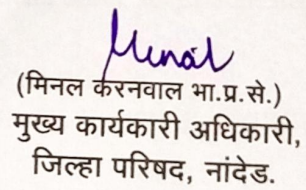 Minal
(मिनल करनवाल भा.प्र.से.)
मुख्य कार्यकारी अधिकारी,
जिल्हा परिषद, नांदेड.